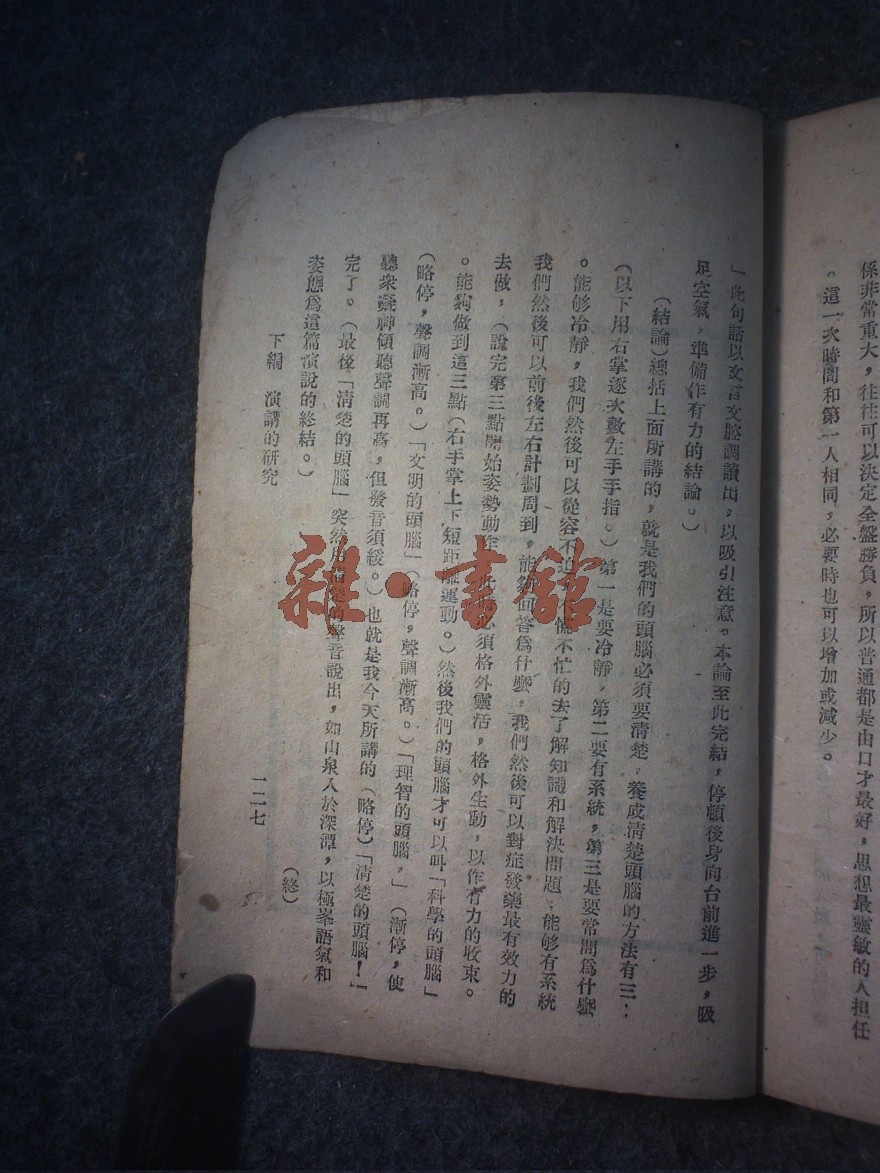 係非常重大，往往可以決定全盤勝負，所以普通都是由口才最好，思想最靈敏的人担任
。這一次時間和第一人相同，必要時也可以增加或減少。
」此句話以文言文腔調讀出，以吸引注意。本論至此完結，停頓後身向台前進一步，吸
足空氣，準備作有力的結論。）
（結論）總括上面所講的，就是我們的頭腦必須要清楚，養成清楚頭腦的方法有三：
（以下用右掌逐次數左手手指。）第一是要冷靜，第二要有系統，第三是要常問爲什麼
。能够冷靜，我們然後可以從容不迫不慌不忙的去了解知識和解決問題，能够有系統
我們然後可以前後左右計劃周到，能夠回答爲什麼，我們然後可以對症發藥最有效力的
去做，（說完第三點開始姿勢動作必須格外靈活，格外生動，以作有力的收束。
。能夠做到這三點（右手掌上下短距離運動。）然後我們的頭腦才可以叫「科學的頭腦」
（略停，聲調漸高。）「文明的頭腦」（略停，聲調漸高。）「理智的頭腦，」（漸停，使
聽衆凝神傾聽聲調再高，但發音須緩。）也就是我今天所講的（略停）「清楚的頭腦！」
完了。（最後「清楚的頭腦」突然用清楚的聲音說出，如山泉入於深潭，以極峯語氣和
姿態爲這篇演說的終結。）
（終）
下編　演講的研究
一二七
雜·書館